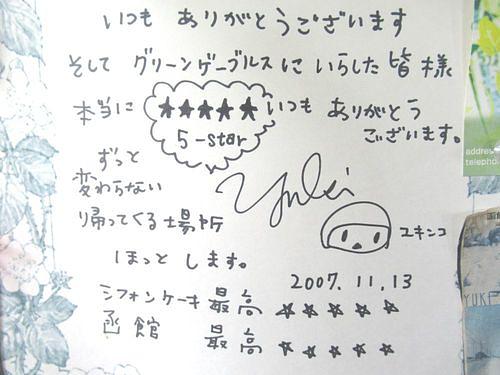 いつも ありがとうございます
そして グリーンゲーブルスに いらした 皆様
本当に ★★★★★ いつも ありがとう
5-star
ございます。
ずっと
変わらない
帰ってくる場所
Yuki
ユキンコ
ほっと します。
2007.11.13
シフォンケーキ 最高 ☆☆☆☆☆
函館 最高 ☆☆☆☆☆
address
telepho
YUKI